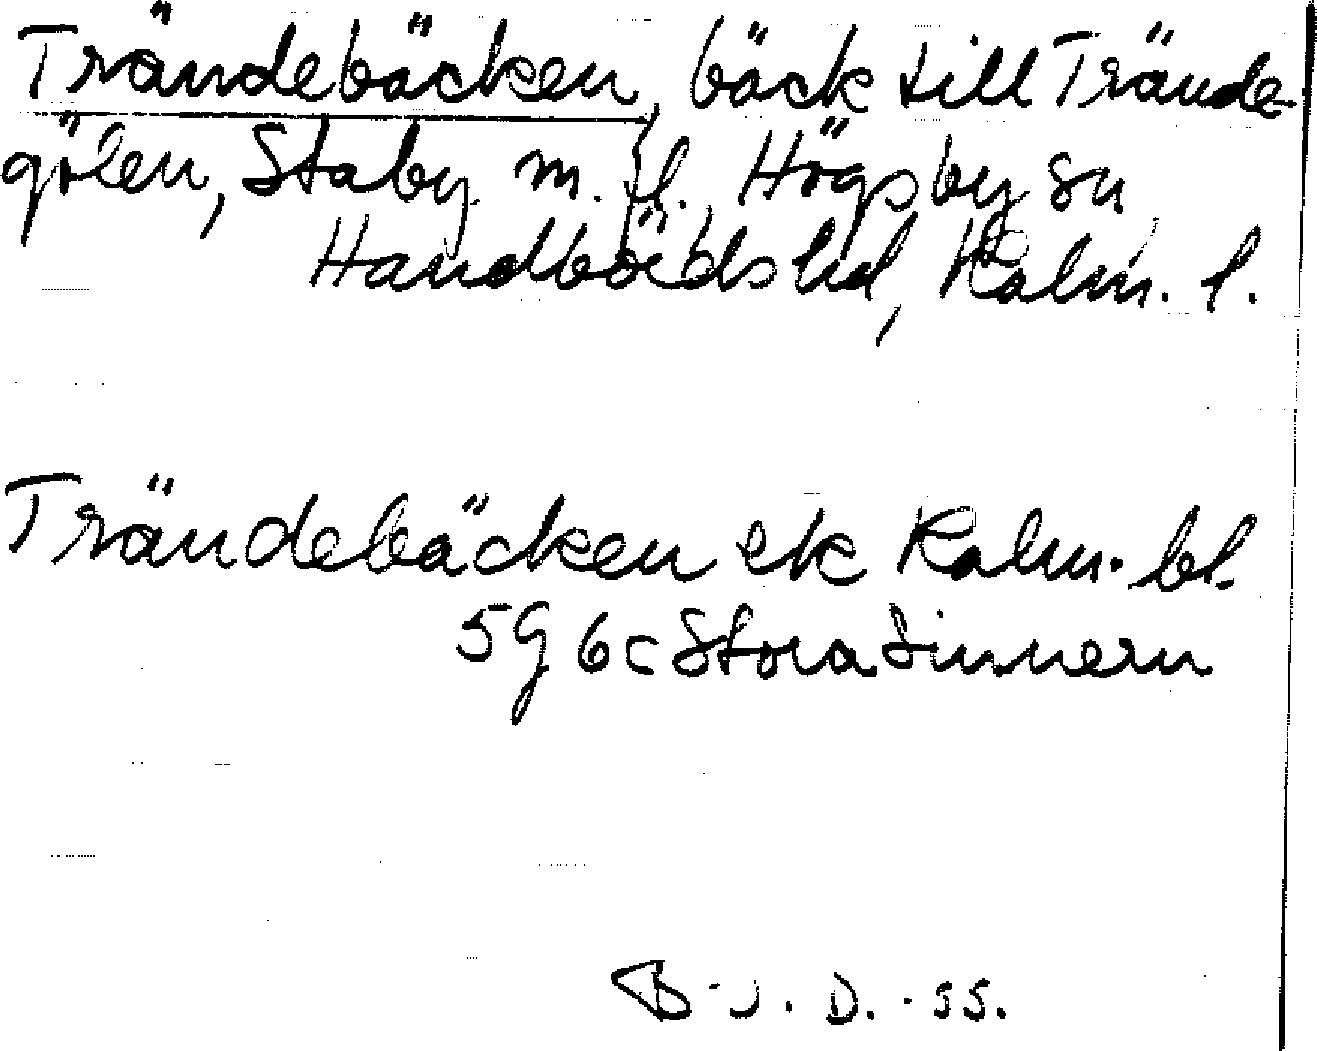 Trändebäcken, bäck till Trände-
gölen, Staby m. fl. Högsby sn
Handbörds hd, Kalm. l.
Trändebäcken ek Kalm. bl.
5G 6c Stora Sinnern
B-J. D. -55.